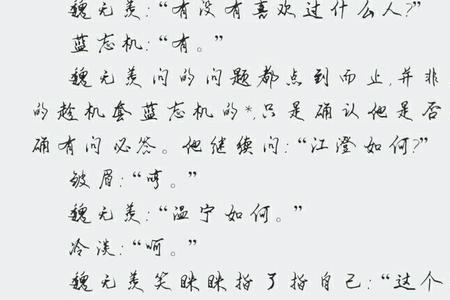 魏无羡:“有没有喜欢过什么人?”
蓝忘机:“有。”
魏无羡问的问题都点到而止,并非
的趁机套蓝忘机的*,只是确认他是否
确有问必答。他继续问:“江澄如何?”
皱眉:“哼。”
魏无羡:“温宁如何。”
冷淡:“呵。”
魏无羡笑眯眯指了指自己:“这个